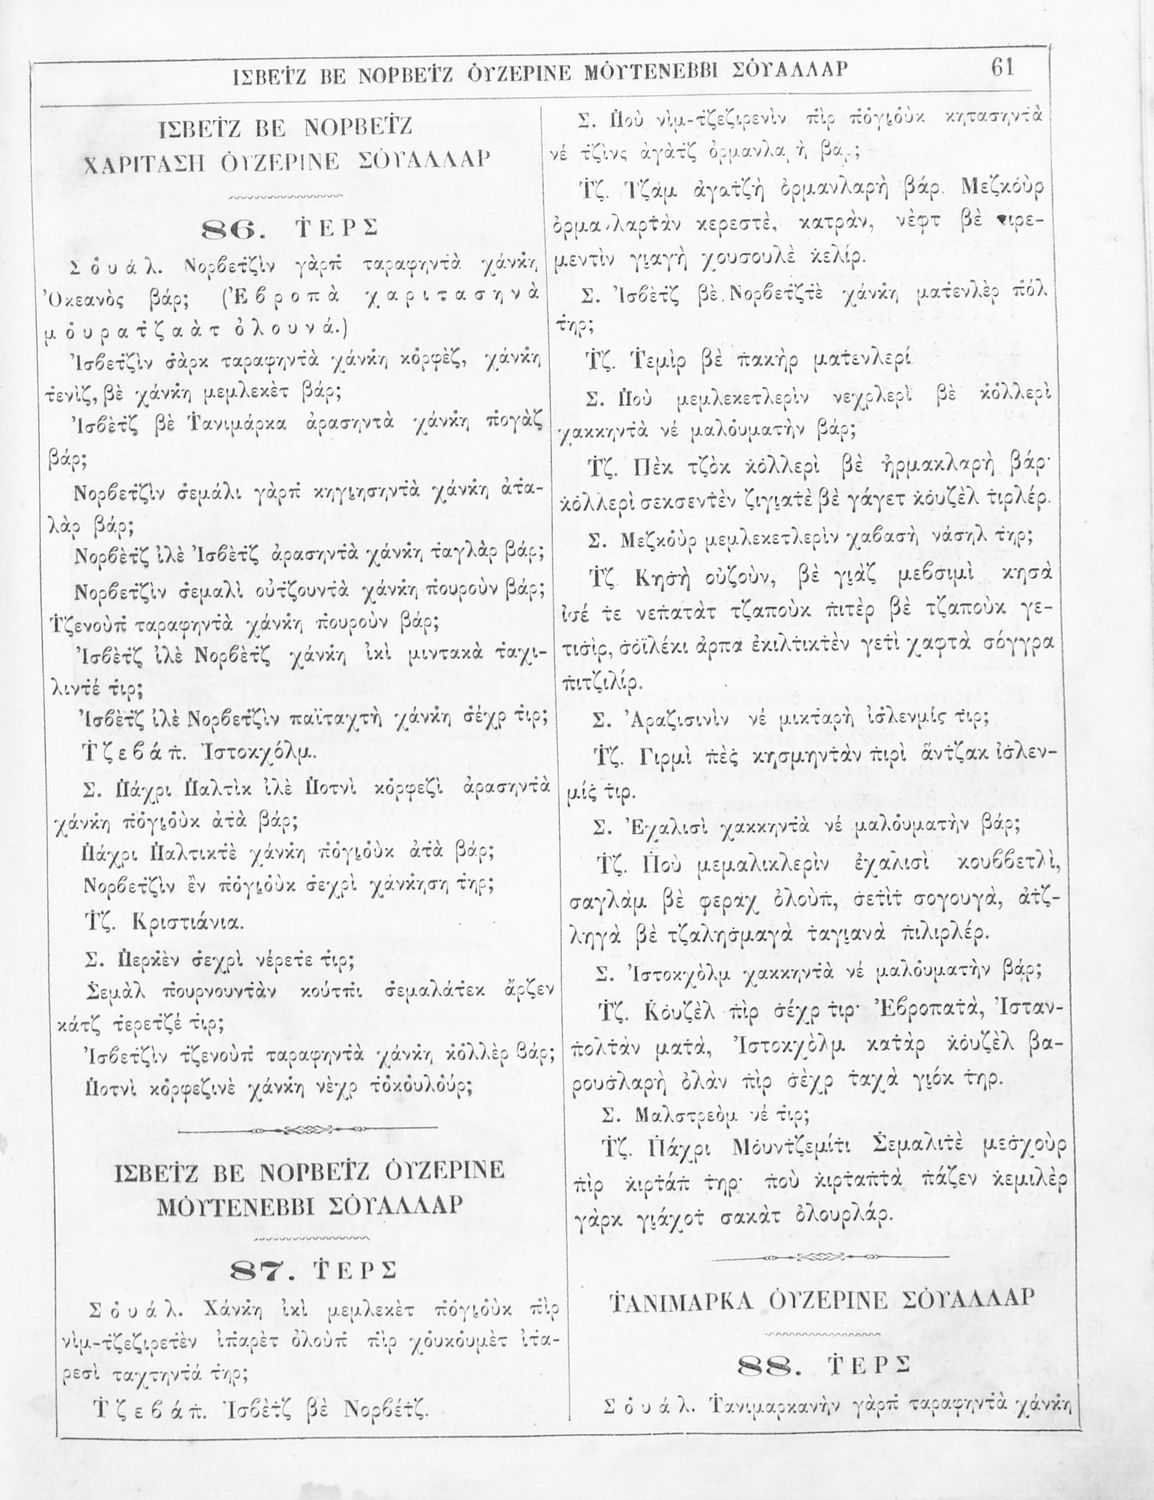 ΙΣΒΕΤ̇Ζ ΒΕ ΝΟΡΒΕΤ̇Ζ ΟΥ̇ΖΕΡΙΝΕ ΜΟΥ̇ΤΕΝΕΒΒΙ ΣΟΥ̇ΑΛΛΑΡ 61
ΙΣΒΕΤ̇Ζ ΒΕ ΝΟΡΒΕΤ̇Ζ
ΧΑΡΙΤΑΣΗ ΟΥ̇ΖΕΡΙΝΕ ΣΟΥ̇ΑΛΛΑΡ
86. Τ̇ΕΡΣ
Σό̇υάλ. Νορβετ̇ζὶν γὰρπ̇ ταραφηντ̇ὰ χάνκ̇η
Ὀκεανὸς βάρ; (Ἐβροπὰ χαριτασηνὰ
μό̇υρατ̇ζαὰτ ὀλουνά.)
Ἰσβετ̇ζὶν σ̇ὰρκ ταραφηντ̇ὰ χάνκ̇η κό̇ρφὲζ, χάνκ̇η
τ̇ενὶζ, βὲ χάνκ̇η μεμλεκὲτ βάρ;
Ἰσβὲτ̇ζ βὲ Τ̇ανιμάρκα ἀρασηντ̇ὰ χάνκ̇η π̇ογὰζ
βάρ;
Νορβετ̇ζὶν σ̇εμάλι γὰρπ̇ κηγι̮ησηντ̇ὰ χάνκ̇η ἀτ̇α-
λὰρ βάρ;
Νορβὲτ̇ζ ἰλὲ Ἰσβὲτ̇ζ ἀρασηντ̇ὰ χάνκ̇η τ̇αγλὰρ βάρ;
Νορβετ̇ζὶν σ̇εμαλὶ οὐτ̇ζουντ̇ὰ χάνκ̇η π̇ουροὺν βάρ;
Τ̇ζενοὺπ̇ ταραφηντ̇ὰ χάνκ̇η π̇ουροὺν βάρ;
Ἰσβὲτ̇ζ ἰλὲ Νορβὲτ̇ζ χάνκ̇η ἰκὶ μιντακὰ τ̇αχι-
λιντ̇έ τ̇ιρ;
Ἰσβὲτ̇ζ ἰλὲ Νορβετ̇ζὶν παϊταχτὴ χάνκ̇η σ̇έχρ τ̇ιρ;
Τ̇ζεβάπ̇. Ἰστοκχόλμ.
Σ. Π̇άχρι Π̇αλτὶκ ἰλὲ Π̇οτνὶ κό̇ρφεζὶ ἀρασηντ̇ὰ
χάνκ̇η π̇ό̇γι̮ό̇ὺκ ἀτ̇ὰ βάρ;
Π̇άχρι Π̇αλτικτ̇ὲ χάνκ̇η π̇ό̇γι̮ό̇ὺκ ἀτ̇ὰ βάρ;
Νορβετ̇ζὶν ἒν π̇ό̇γι̮ό̇ὺκ σ̇εχρὶ χάνκ̇ηση τ̇ηρ;
Τ̇ζ. Κριστιάνια.
Σ. Π̇ερκ̇ὲν σ̇εχρὶ νέρετ̇ε τ̇ιρ;
Σ̇εμὰλ π̇ουρνουντ̇ὰν κούτπι σ̇εμαλάτ̇εκ ἄρζεν
κάτζ τ̇ερετ̇ζέ τ̇ιρ;
Ἰσβετ̇ζὶν τ̇ζενοὺπ̇ ταραφηντ̇ὰ χάνκ̇η κό̇λλὲρ βάρ;
Π̇οτνὶ κό̇ρφεζινὲ χάνκ̇η νὲχρ τ̇ό̇κό̇υλό̇ύρ;
ΙΣΒΕΤ̇Ζ ΒΕ ΝΟΡΒΕΤ̇Ζ ΟΥ̇ΖΕΡΙΝΕ
ΜΟΥ̇ΤΕΝΕΒΒΙ ΣΟΥ̇ΑΛΛΑΡ
87. Τ̇ΕΡΣ
Σό̇υάλ. Χάνκ̇η ἰκὶ μεμλεκὲτ π̇ό̇γι̮ό̇ὺκ π̇ὶρ
νὶμ-τ̇ζεζιρετ̇ὲν ἰπ̇αρὲτ ὀλοὺπ̇ π̇ὶρ χό̇υκό̇υμὲτ ἰτ̇α-
ρεσὶ ταχτηντ̇ά τ̇ηρ;
Τ̇ζεβάπ̇. Ἰσβὲτ̇ζ βὲ Νορβέτ̇ζ.
Σ. Π̇οὺ νὶμ-τ̇ζεζιρενὶν π̇ὶρ π̇ό̇γι̮ό̇ὺκ κητασηντ̇ὰ
νέ τ̇ζὶνς ἀγὰτζ ὀρμανλαρὴ βάρ;
Τ̇ζ. Τζὰμ ἀγατ̇ζὴ ὀρμανλαρὴ βάρ. Μεζκό̇ὺρ
ὀρμανλαρτ̇ὰν κερεστὲ, κατρὰν, νὲφτ βὲ τιρε-
μεντὶν γι̮αγὴ χουσουλὲ κ̇ελίρ.
Σ. Ἰσβὲτ̇ζ βὲ Νορβετ̇ζτ̇ὲ χάνκ̇η ματ̇ενλὲρ π̇όλ
τ̇ηρ;
Τ̇ζ. Τ̇εμὶρ βὲ π̇ακὴρ ματ̇ενλερί
Σ. Π̇οὺ μεμλεκετλερὶν νεχρλερὶ βὲ κ̇ό̇λλερὶ
χακκηντ̇ὰ νέ μαλό̇υματὴν βάρ;
Τ̇ζ. Πὲκ τζὸκ κ̇ό̇λλερὶ βὲ ἠρμακλαρὴ βάρ·
κ̇ό̇λλερὶ σεκσεντ̇ὲν ζιγι̮ατ̇ὲ βὲ γάγετ κ̇ό̇υζὲλ τ̇ιρλέρ.
Σ. Μεζκό̇ὺρ μεμλεκετλερὶν χαβασὴ νάσηλ τ̇ηρ;
Τ̇ζ Κησ̇ὴ οὐζοὺν, βὲ γι̮ὰζ μεβσιμὶ κησὰ
ἰσέ τ̇ε νεπ̇ατὰτ τζαποὺκ π̇ιτὲρ βὲ τζαποὺκ γε-
τισ̇ὶρ, σ̇ό̇ϊλέκι ἀρπα ἐκιλτικτ̇ὲν γετ̇ὶ χαφτὰ σόγγρα
π̇ιτζιλίρ.
Σ. Ἀραζισινὶν νέ μικτ̇αρὴ ἰσ̇λενμίς̇ τ̇ιρ;
Τ̇ζ. Γιρμὶ π̇ὲς̇ κησμηντ̇ὰν π̇ιρὶ ἄντ̇ζακ ἰσ̇λεν-
μίς̇ τ̇ιρ.
Σ. Ἐχαλισὶ χακκηντ̇ὰ νέ μαλό̇υματὴν βάρ;
Τ̇ζ. Π̇οὺ μεμαλικλερὶν ἐχαλισὶ κουββετλὶ,
σαγλὰμ βὲ φεραχ ὀλοὺπ̇, σ̇ετ̇ὶτ̇ σογουγὰ, ἀτ̇ζ-
ληγὰ βὲ τζαλησ̇μαγὰ τ̇αγι̮ανὰ π̇ιλιρλέρ.
Σ. Ἰστοκχὸλμ χακκηντ̇ὰ νέ μαλό̇υματὴν βάρ;
Τ̇ζ. Κ̇ό̇υζὲλ π̇ὶρ σ̇έχρ τ̇ιρ· Ἐβροπατ̇ὰ, Ἰσταν-
π̇ολτ̇ὰν ματ̇ὰ, Ἰστοκχὸλμ κατ̇ὰρ κ̇ό̇υζὲλ βα-
ρουσ̇λαρὴ ὀλὰν π̇ὶρ σ̇ὲχρ τ̇αχὰ γι̮όκ τ̇ηρ.
Σ. Μαλστρεὸμ νέ τ̇ιρ;
Τ̇ζ. Π̇άχρι Μό̇υντ̇ζεμίτ̇ι Σ̇εμαλιτ̇ὲ μεσ̇χοὺρ
π̇ὶρ κ̇ιρτ̇άπ̇ τ̇ηρ· π̇οὺ κ̇ιρτ̇απ̇τ̇ὰ π̇άζεν κ̇εμιλὲρ
γὰρκ γι̮άχοτ̇ σακὰτ ὀλουρλάρ.
Τ̇ΑΝΙΜΑΡΚΑ ΟΥ̇ΖΕΡΙΝΕ ΣΟΥ̇ΑΛΛΑΡ
88. Τ̇ΕΡΣ
Σό̇υάλ. Τ̇ανιμαρκανὴν γὰρπ̇ ταραφηντ̇ὰ χάνκ̇η